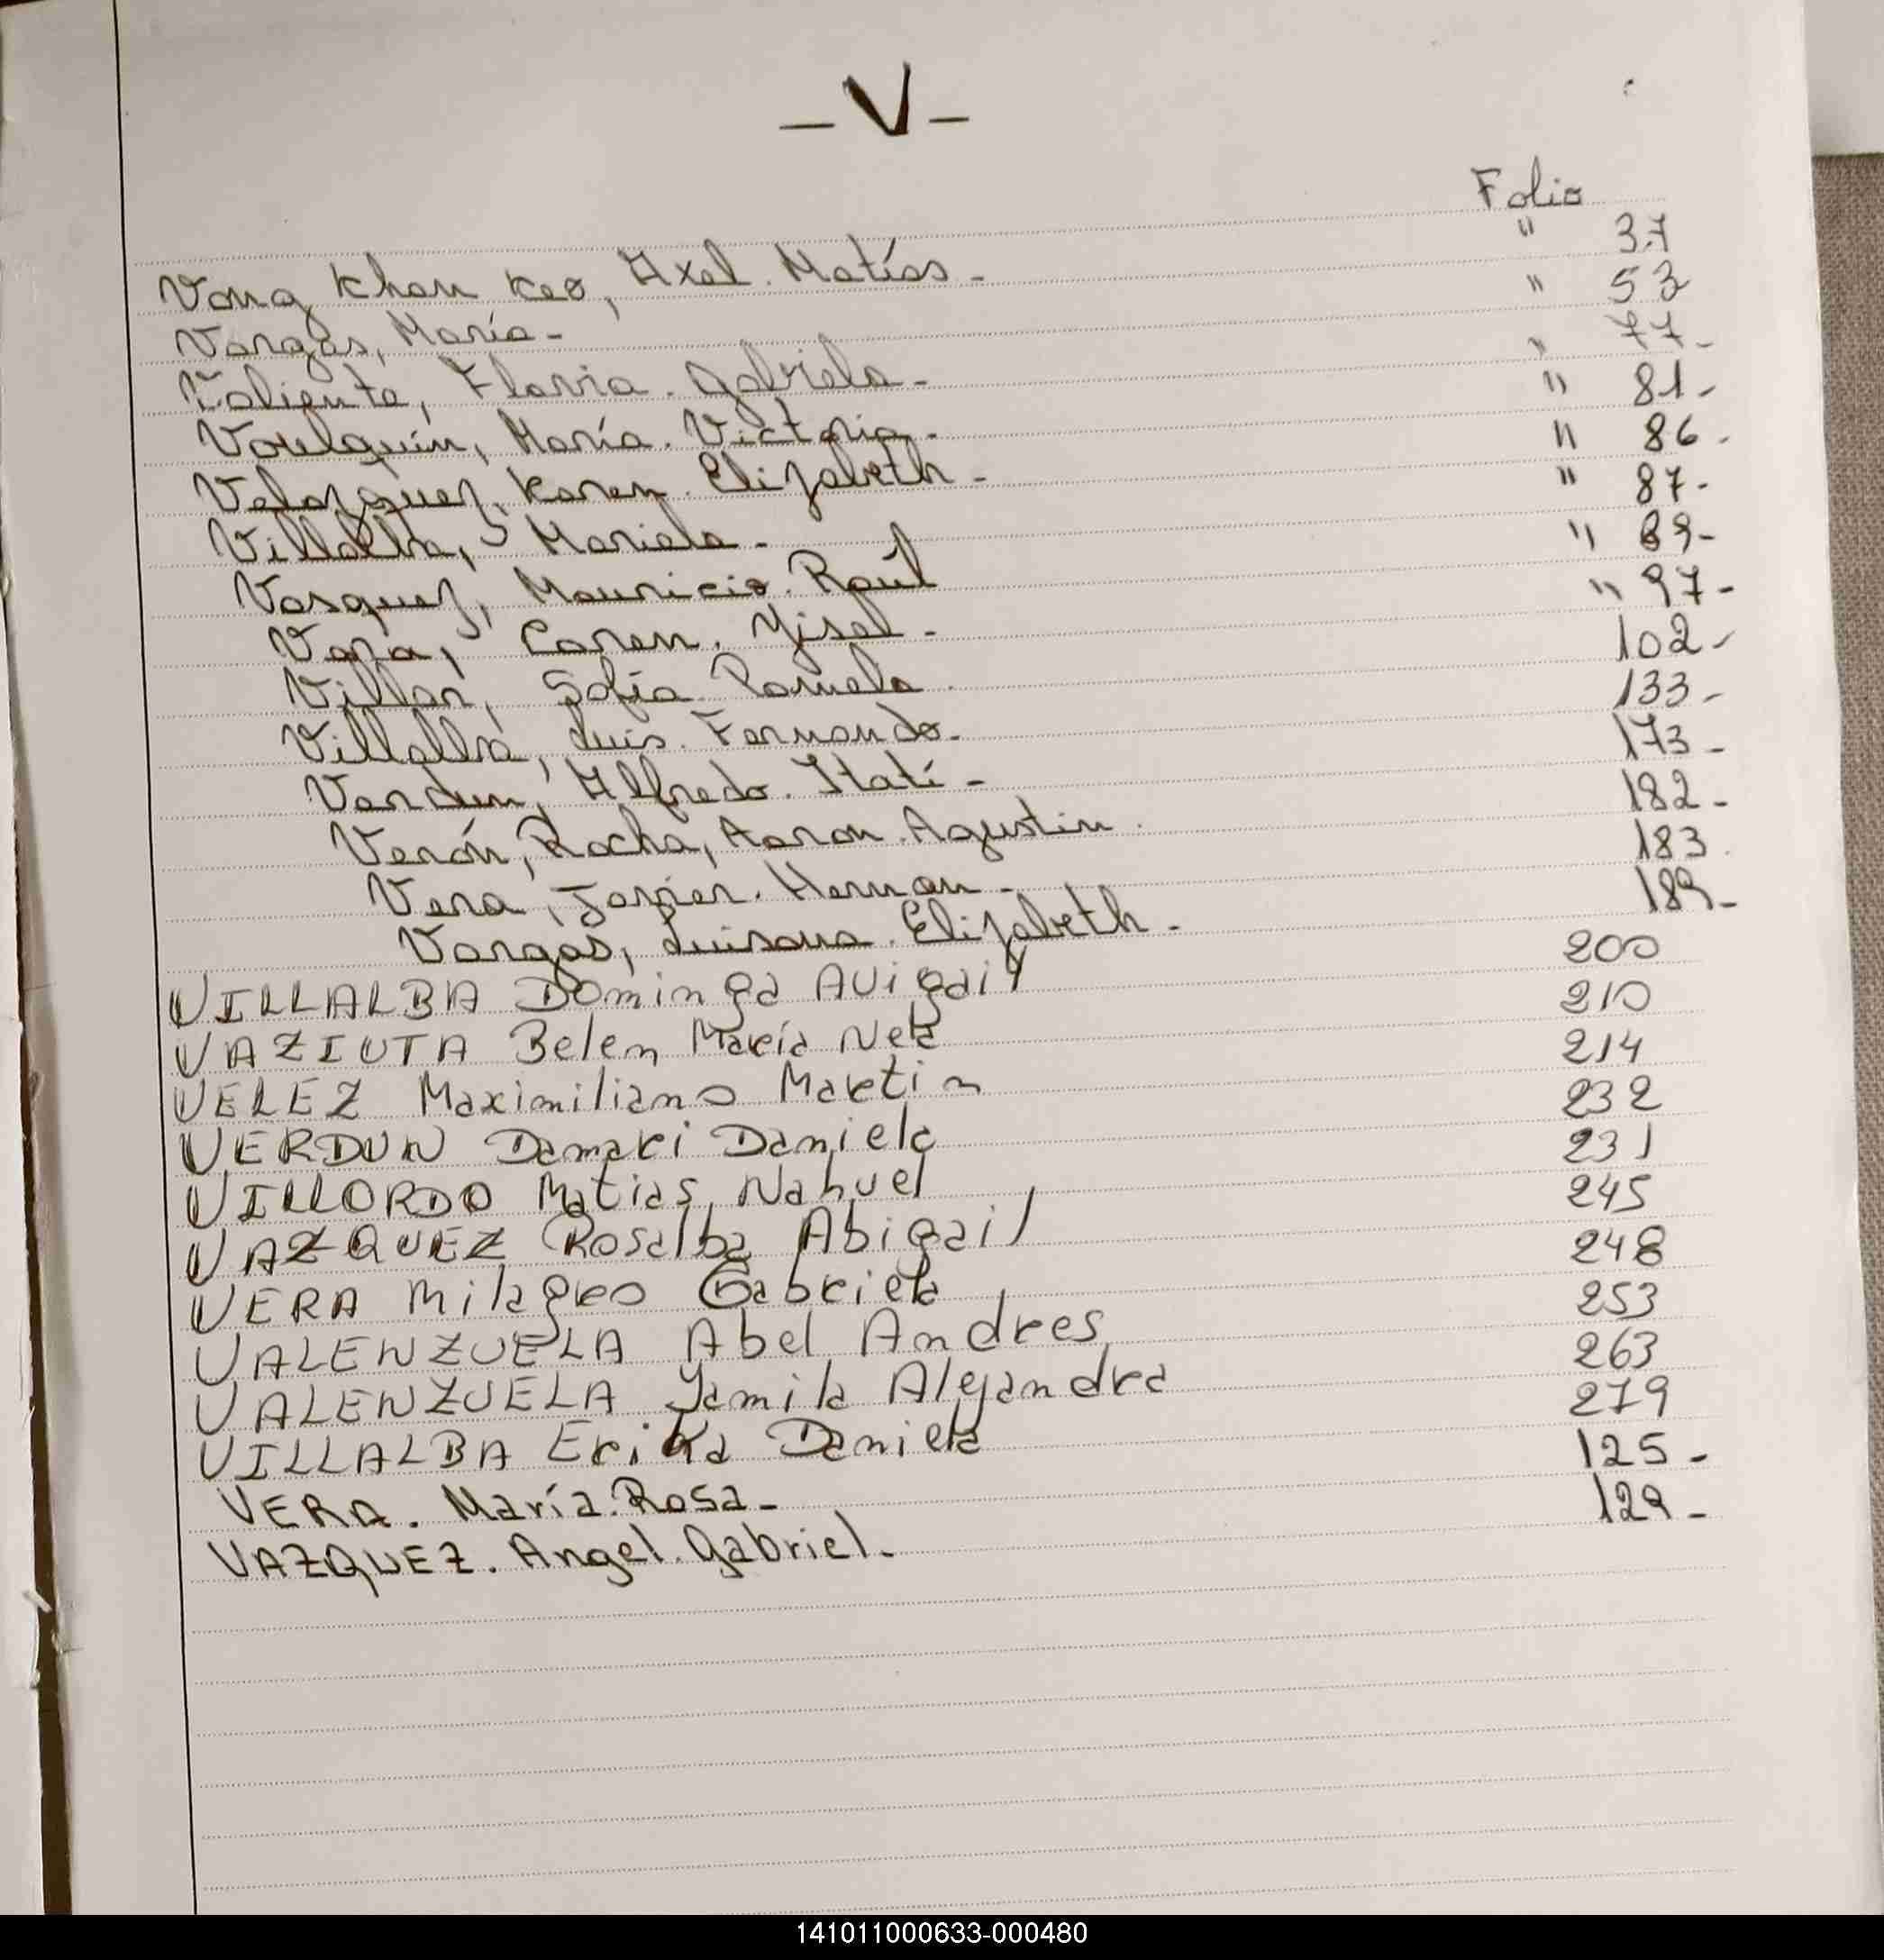 - V -
Folio
Vong Khan Keo, Axel. Matías - " 37
Vargas, María - " 53
Valiente, Flavia. Gabriela - " 77 -
María. Victoria - " 81 -
Velazquez, Karen. Elizabeth - " 86 -
Villalba, Mariela - " 87 -
Vasquez, Mauricio. Raúl " 89 -
Vara, Caren. Yisel - " 97 -
Villar, Sofía. Pamela 102 -
Villalba, Luis. Fernando - 133 -
Vardun, Alfredo. Itatí - 173 -
Verón, Rocha, Aaron. Agustin. 182 -
Vera, Javier. Hernan - 183.
Vargas, Luisana. Elizabeth - 189 -
VILLALBA Dominga Avigail 200
VAZIUTA Belem María Nela 210
VELEZ Maximiliano Martin 214
VERDUN Damari Daniela 232
VILLORDO Matias Nahuel 231
VAZQUEZ Rosalba Abigail 245
VERA Milagro Gabriela 248
VALENZUELA Abel Andres 253
VALENZUELA Yamila Alejandra 263
VILLALBA Erika Daniela 279
VERA. María. Rosa - 125 -
VAZQUEZ. Angel. Gabriel - 129 -
141011000633-000480